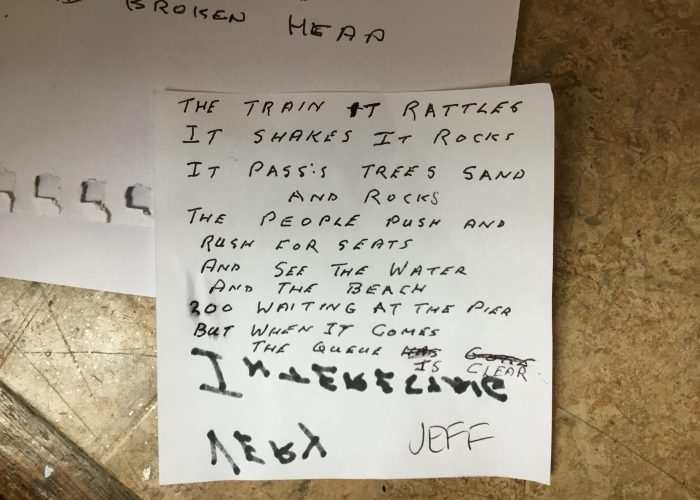 BROKEN HEAD
THE TRAIN IT RATTLES
IT SHAKES IT ROCKS
IT PASS:S TREES SAND
AND ROCKS
THE PEOPLE PUSH AND
RUSH FOR SEATS
AND SEE THE WATER
AND THE BEACH
200 WAITING AT THE PIER
BUT WHEN IT COMES
THE QUEUE HAS GONE
IS CLEAR
INTERESTING
VERY
JEFF